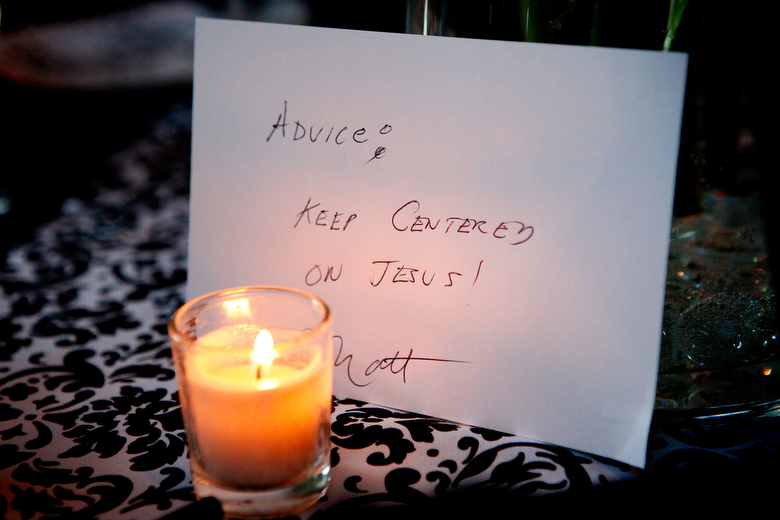 ADVICE:
KEEP CENTERED
ON JESUS!
Matt